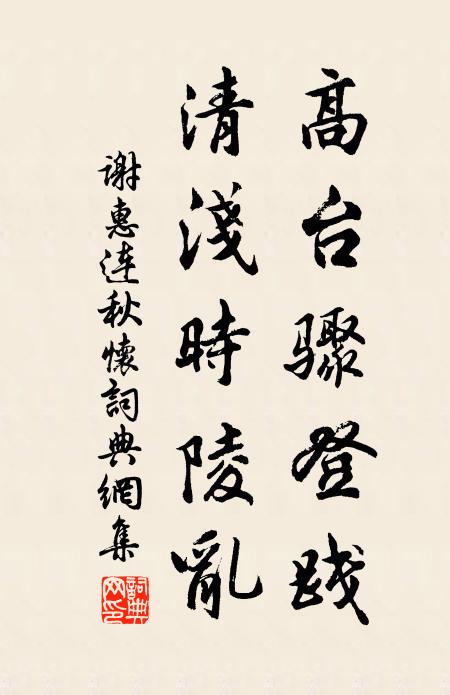 高台驟登踐
清淺時陵亂
謝惠連秋懷詞典網集
詞典网印